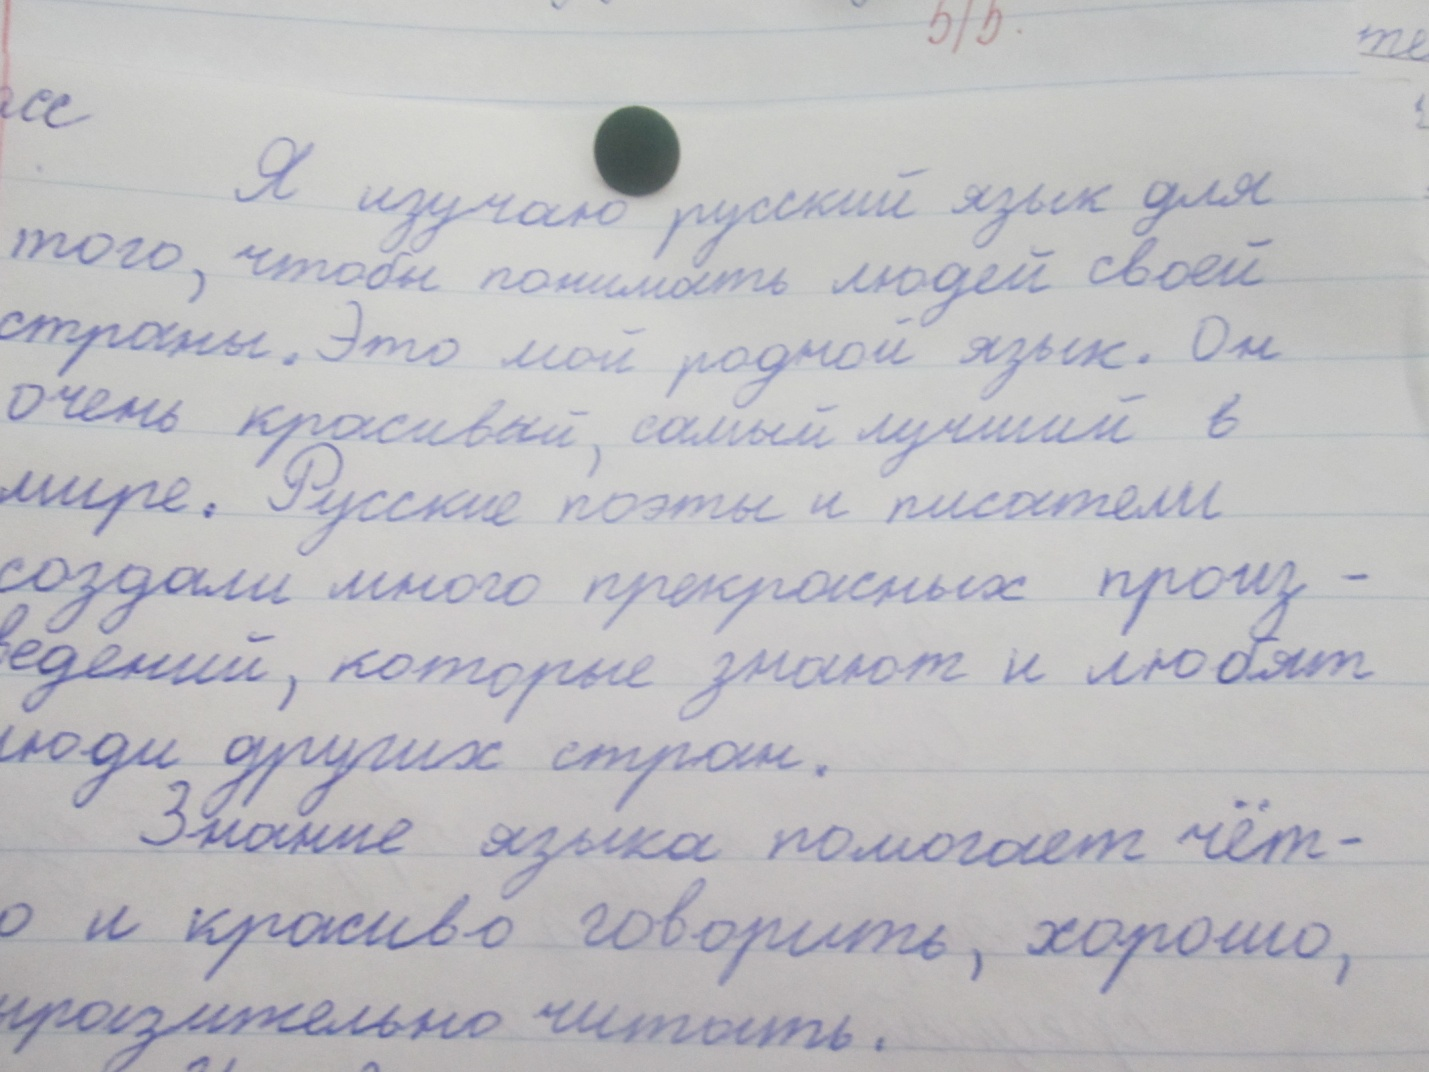 5/5.
Я изучаю русский язык для
того, чтобы понимать людей своей
страны. Это мой родной язык. Он
очень красивый, самый лучший в
мире. Русские поэты и писатели
создали много прекрасных произ-
ведений, которые знают и любят
люди других стран.
Знание языка помогает чёт-
о и красиво говорить, хорошо,
ыразительно читать.